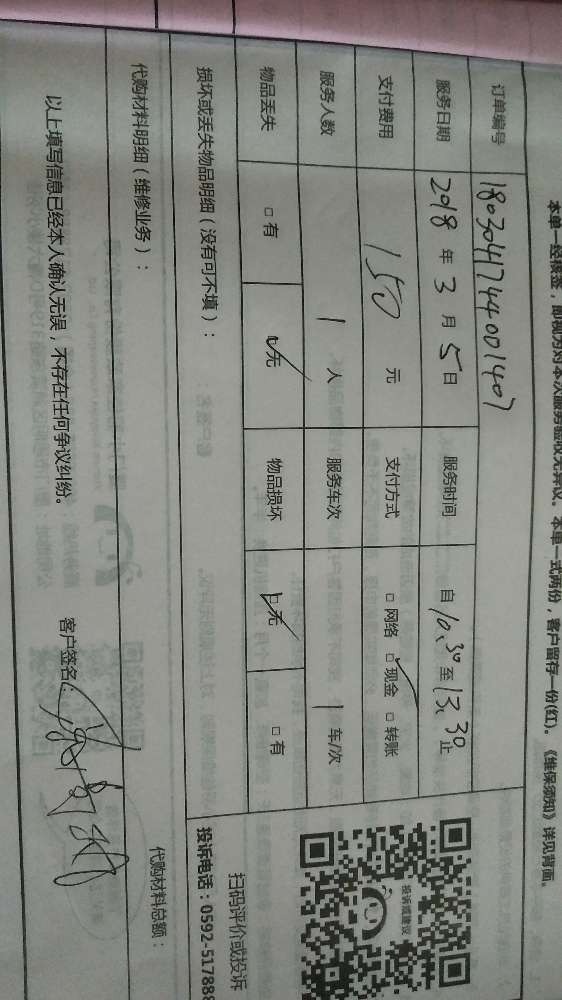 本单一经接签，即视为对本次服务验收无异议。本单一式两份，客户留存一份(红)。《维保须知》详见背面。
订单编号 1803041744001407
服务日期 2018 年 3 月 5 日 服务时间 自 10.30 至 13.30 止
支付费用 150 元 支付方式 □ 网络 ☑ 现金 □ 转账
服务人数 1 人 服务车次 1 车/次
物品丢失 □ 有 ☑ 无 物品损坏 ☑ 无 □ 有
损坏或丢失物品明细（没有可不填）：
代购材料明细（维修业务）： 代购材料总额：
以上填写信息已经本人确认无误，不存在任何争议纠纷。 客户签名：
投诉或建议
扫码评价或投诉
投诉电话：0592-517888